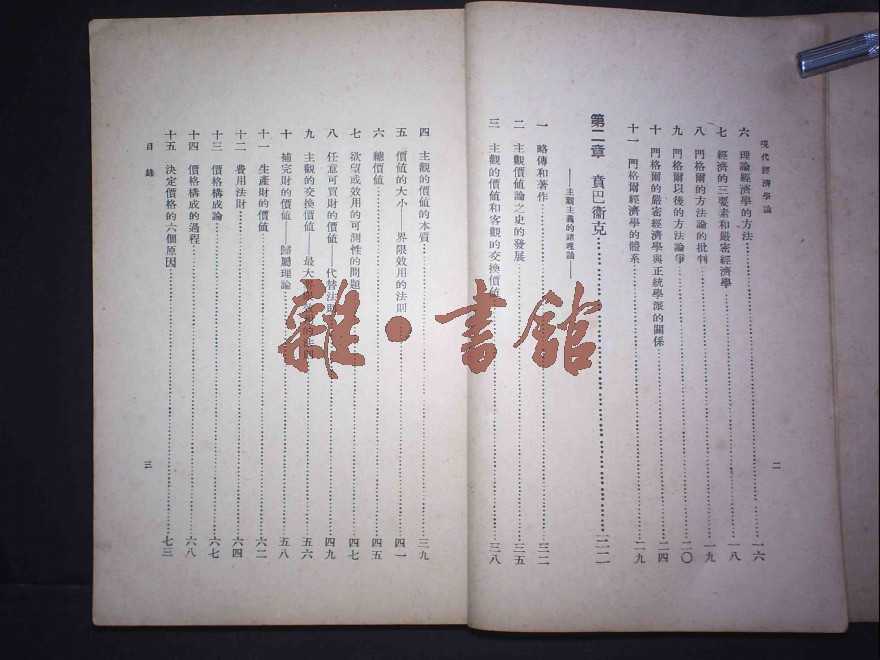 現代經濟學論
六 理論經濟學的方法……一六
七 經濟的三要素和嚴密經濟學……一八
八 門格爾的方法論的批判……一九
九 門格爾以後的方法論爭……二〇
十 門格爾的嚴密經濟學與正統學派的關係……二四
十一 門格爾經濟學的體系……二九
第二章 賁巴衞克……三二
——主觀主義的諸理論——
一 略傳和著作……三二
二 主觀價値論之史的發展……三五
三 主觀的價値和客觀的交換價値……三八
二
四 主觀的價値的本質……三九
五 價値的大小——界限效用的法則……四一
六 總價値……四五
七 欲望或效用的可測性的問題……四七
八 任意可買財的價値——代替法則……四九
九 主觀的交換價値——最大……五六
十 補完財的價値——歸屬理論……五八
十一 生產財的價値……六二
十二 費用法財……六四
十三 價格構成論……六七
十四 價格構成的過程……六八
十五 決定價格的六個原因……七三
目錄
三
雜·書館